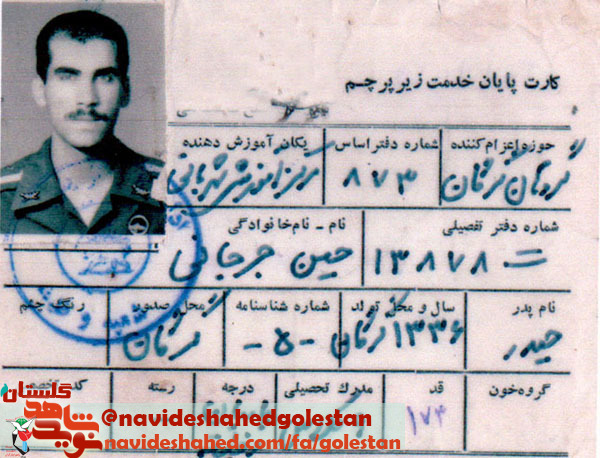 کارت پایان خدمت زیر پرچم
حوزه اعزام کننده شماره دفتر اساس یکان آموزش دهنده
گروهان گرگان ۸۷۳ مرکز آموزش شهربانی
شماره دفتر تفصیلی نام - نام خانوادگی
۱۳۸۷۸ = حسین جرجانی
نام پدر سال و محل تولد شماره شناسنامه محل صدور رنگ چشم
حیدر ۱۳۳۶ گرگان -۵- گرگان
گروه خون قد مدرک تحصیلی درجه رسته
۱۷۴
نوید شاهد گلستان
@navideshahedgolestan
navideshahed.com/fa/golestan